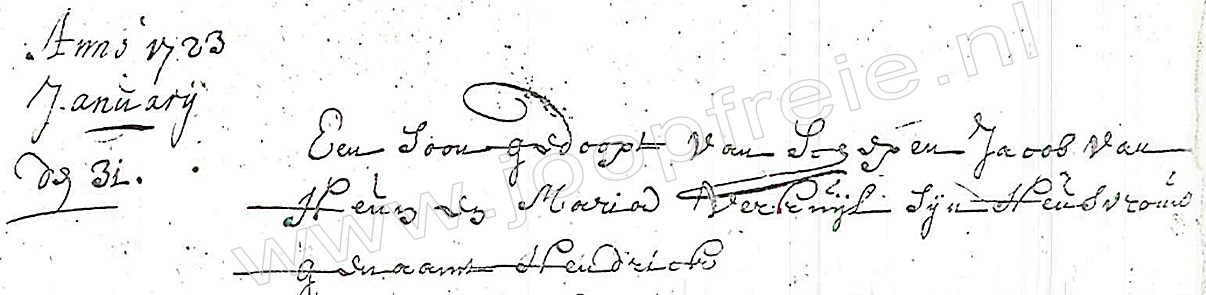 Anno 1723
January
de 31.
Een Soon gedoopt van Scepen Jacob van
Heus en Maria Verkuijl Sijn Heusvrouw
genaamt Hendrick
www.joopfreie.nl